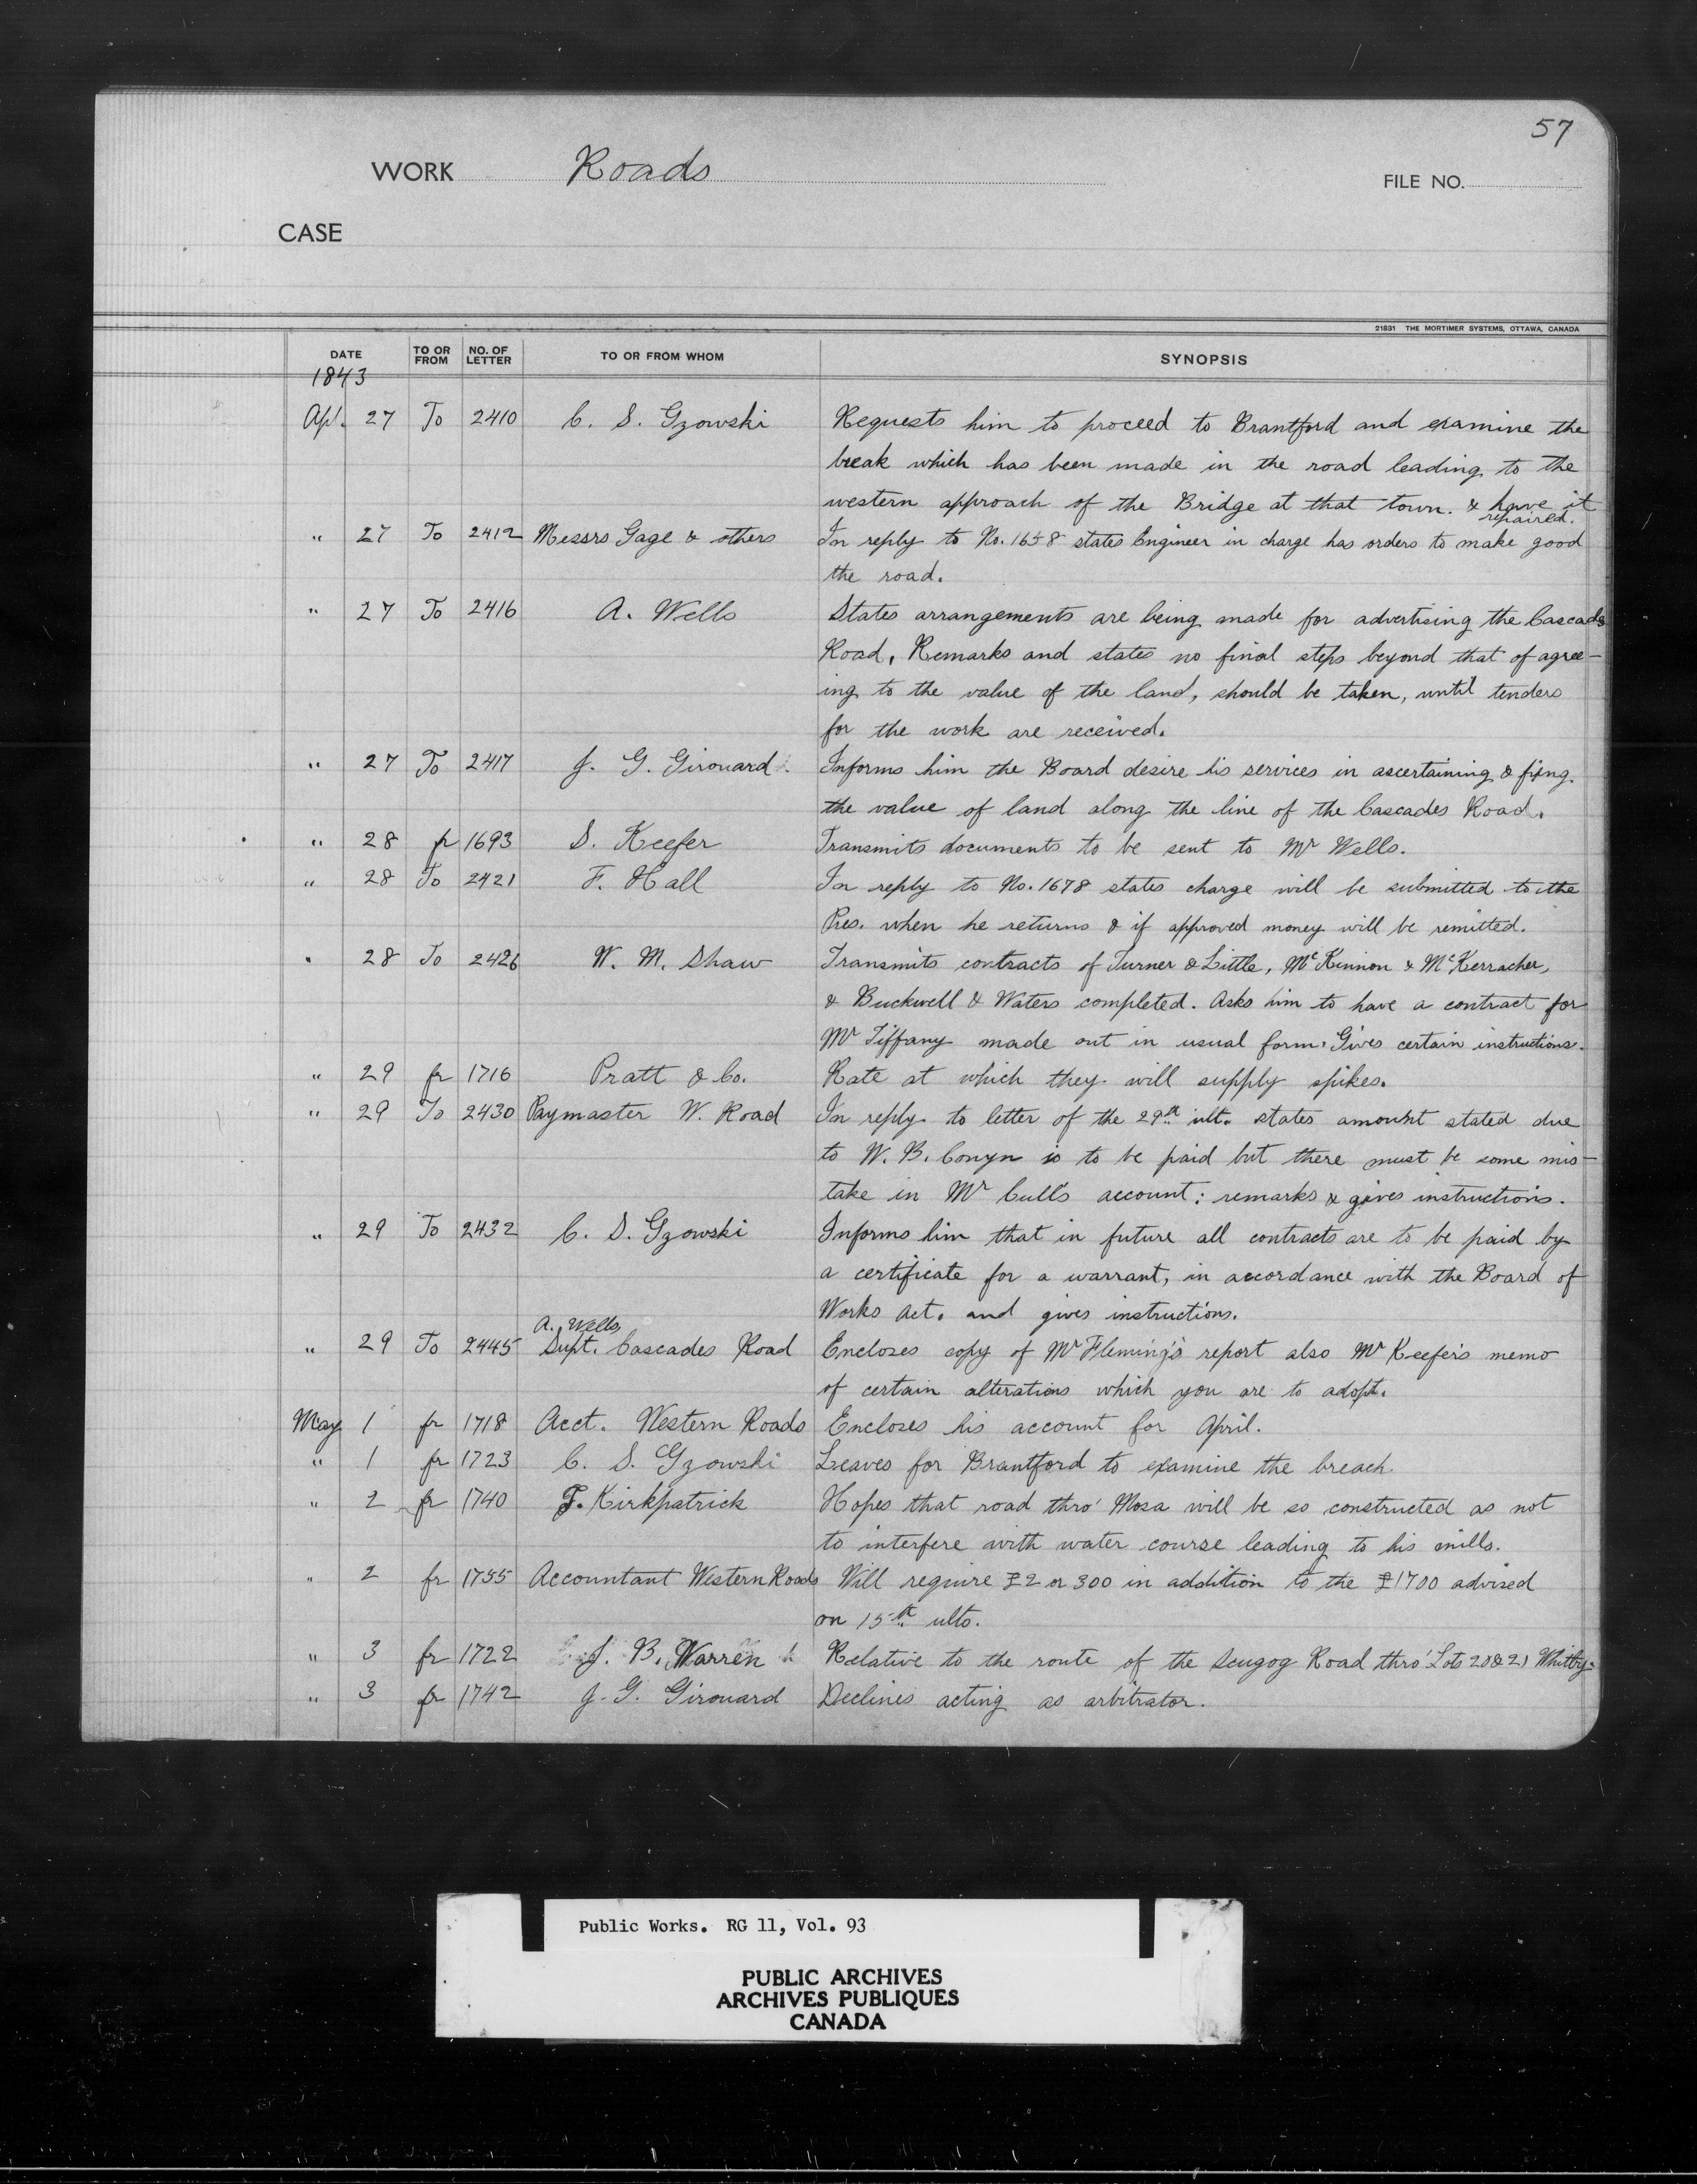 57
WORK Roads
FILE NO.
CASE
21831 THE MORTIMER SYSTEMS, OTTAWA, CANADA
DATE TO OR FROM NO. OF LETTER TO OR FROM WHOM SYNOPSIS
1843
Apl. 27 To 2410 C. S. Gzowski Requests him to proceed to Brantford and examine the
break which has been made in the road leading to the
western approach of the Bridge at that town. & have it
repaired.
" 27 To 2412 Messrs Gage & others In reply to No. 1658 states Engineer in charge has orders to make good
the road.
" 27 To 2416 A. Wells States arrangements are being made for advertising the Cascades
Road, Remarks and states no final steps beyond that of agree-
ing to the value of the land, should be taken, until tenders
for the work are received.
" 27 To 2417 J. G. Girouard Informs him the Board desire his services in ascertaining & fixng.
the value of land along the line of the Cascades Road.
" 28 fr 1693 S. Keefer Transmits documents to be sent to Mr Wells.
" 28 To 2421 F. Hall In reply to No. 1678 states charge will be submitted to the
Pres. when he returns & if approved money will be remitted.
" 28 To 2426 W. M. Shaw Transmits contracts of Turner & Little, McKinnon & McKerracher,
& Buckwell & Waters completed. Asks him to have a contract for
Mr Tiffany made out in usual form. Gives certain instructions.
" 29 fr 1716 Pratt & Co. Rate at which they will supply spikes.
" 29 To 2430 Paymaster W. Road In reply to letter of the 29th ult. states amount stated due
to W. B. Conyn is to be paid but there must be some mis-
take in Mr Cull's account: remarks & gives instructions.
" 29 To 2432 C. S. Gzowski Informs him that in future all contracts are to be paid by
a certificate for a warrant, in accordance with the Board of
Works Act. and gives instructions.
A. Wells
" 29 To 2445 Supt. Cascades Road Encloses copy of Mr Fleming's report also Mr Keefer's memo
of certain alterations which you are to adopt.
May 1 fr 1718 Acct. Western Roads Encloses his account for April.
" 1 fr 1723 C. S. Gzowski Leaves for Brantford to examine the breach.
" 2 fr 1740 T. Kirkpatrick Hopes that road thro' Mosa will be so constructed as not
to interfere with water course leading to his mills.
" 2 fr 1755 Accountant Western Roads Will require £2 or 300 in addition to the £1700 advised
on 15th ulto.
" 3 fr 1722 J. B. Warren Relative to the route of the Scugog Road thro' Lots 20 & 21 Whitby.
" 3 fr 1742 J. G. Girouard Declines acting as arbitrator.
Public Works. RG 11, Vol. 93
PUBLIC ARCHIVES
ARCHIVES PUBLIQUES
CANADA